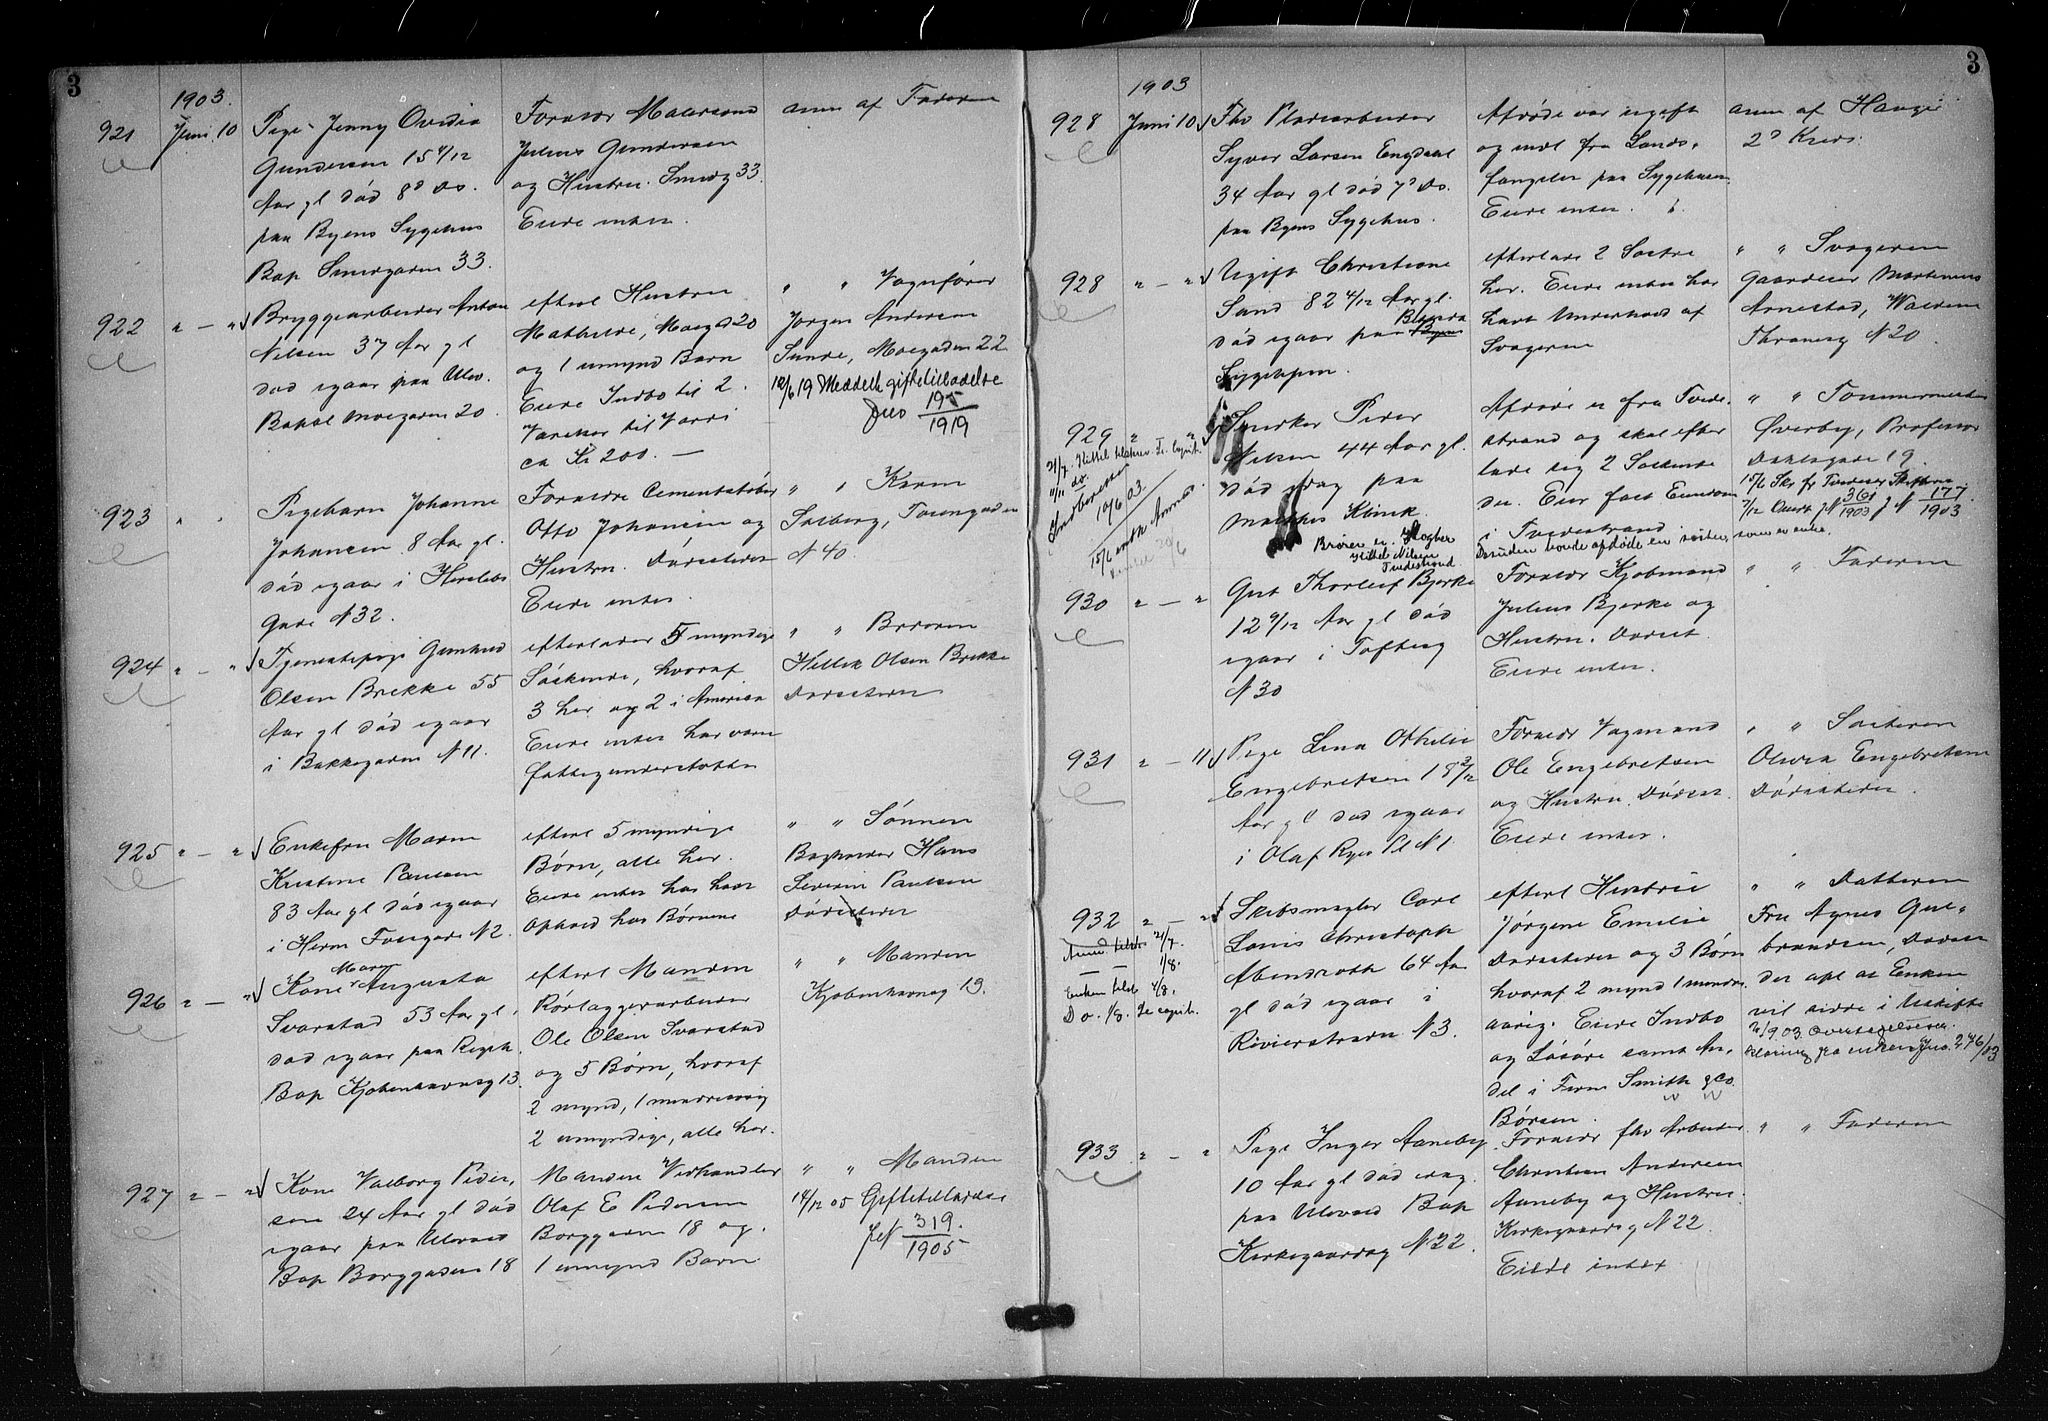 3
1903.
921 Juni 10
Pige Jenny Ovidia
Gundersen 15 4/12
Aar gl død 8d ds.
paa Byens Sygehus
Bop Smedgaden 33.
Forældr
Julius Gundersen
og Hustru. Smedg 33.
Eiede intet.
anm af Faderen
922 " — "
Bryggearbeider Anton
Nilsen 37 Aar gl
død igaar paa Ullev.
Bopæl Moegaden 20.
efterl Hustru
Mathilde, Moegd 20
og 1 umynd Barn
Eiede Indbo til 2.
Værelser til Værdi
ca Kr 200. —
" " Vognfører
Jørgen Andersen
Sunde, Moegaden 22
12/6 19 Meddelt giftetilladelse
Jno 195/1919
923 " "
Pigebarn Johanne
Johansen 8 Aar gl.
død igaar i Herslebs
Gade N 32.
Forældre Cementstøber
Otto Johansen og
Hustru. Dødsstedet
Eiede intet.
" " Karen
Solberg, Tøiengaden
N 40.
924 " — "
Tjenestepige Gunhild
Olsen Brekke 55
Aar gl død igaar
i Bakkegaden N 11.
efterlader 5 myndige
Søskende, hvoraf
3 her og 2 i Amerika
Eiede intet har været
fattigunderstøttet
" " Broderen
Hellik Olsen Brekke
Dødsstedet
925 " — "
Enkefru Maren
Kristine Paulsen
83 Aar gl død igaar
i Herm Fossgade N 2.
efterl 5 myndige
Børn, alle her.
Eiede intet har havt
Ophold hos Børnene
" " Sønnen
Bogbinder Hans
Severin Paulsen
Dødsstedet
926 " — "
Kone Maren Augusta
Svarstad 53 Aar gl.
død igaar paa Rigsh.
Bop Kjøbenhavnsg 13.
efterl Manden
Rørlæggerarbeider
Ole Olsen Svarstad
og 5 Børn, hvoraf
2 mynd, 1 mindreaarig
2 umyndige, alle her.
" " Manden
Kjøbenhavnsg 13.
927 " — "
Kone Valborg Peder,
sen 24 Aar gl død
igaar paa Ulevold
Bop Borggaden 18
Manden Vedhandler
Olaf E Pedersen
Borggaden 18 og
1 umynd Barn
" " Manden
14/12 05 Giftetilladelse
JN 319./1905
3
1903
928 Juni 10
Fhv Pladsarbeider
Syver Larsen Engdahl
34 Aar gl død 7d ds.
paa Byens Sygehus.
Afdøde var ugift
og indl fra Lands,
fængslet paa Sygehuset.
Eiede intet.
anm af Hauge
2d Kreds.
928 " — "
Ugift Christiane
Sand 82 4/12 Aar gl.
død igaar paa Byens
Sygehjem.
efterlade 2 Søstre
her. Eiede intet har
havt Underhold af
Svogeren
" " Svogeren
Gaardeier Martinius
Arnestad, Waldem
Thranesg N 20.
929 " "
Snedker Peder
Nilsen 44 Aar gl.
død idag paa
Malthes Klinik.
Broder er Slagter
Kittil Nilsen
Tvedestrand
Afdøde er fra Tvede,
strand og skal efter
lade sig 2 Søskende
der. Eier fast Eiendom
i Tvedestrand.
Desuden havde afdøde en søster, som er enke.
" " Tømmermester
Øverby, Professor
Dahlsgade 19.
N 361/1903 J N 177/1903
10/6 03.
930 " — "
Gut Thorleif Bjerke
12 9/12 Aar gl død
igaar i Toftesg
N 30
Forældr Kjøbmand
Julius Bjerke og
Hustru. Dødsst.
Eiede intet.
" " Faderen
931 " — 11
Pige Lina Othilie
Engebretsen 18 3/12
Aar gl død igaar
i Olaf Ryes Pl N 1.
Forældr Vognmand
Ole Engebretsen
og Hustru. Dødsst.
Eiede intet.
" " Søsteren
Olivia Engebretsen
Dødsstedet.
932 " — "
Skibsmægler Carl
Louis Christoph
Abendroth 64 Aar
gl død igaar i
Rivierstræde N 3.
efterl Hustru
Jørgine Emilie
Dødsstedet og 3 Børn
hvoraf 2 mynd 1 mindre
aarig. Eiede Indbo
og Løsøre samt An,
del i Firm Smith & Co.
Børsen.
" " Datteren
Fru Agnes Gul,
brandsen, Dødsst.
der opl at Enken
vil sidde i Uskifte
276/03
933 " — "
Pige Inger Aaneby
10 Aar gl død idag
paa Ulevold Bop
Kirkegaardsg N 22.
Forældr fhv Arbeider
Christian Andersen
Aaneby og Hustru.
Kirkegaardsg N 22.
Eiede intet
" " Faderen